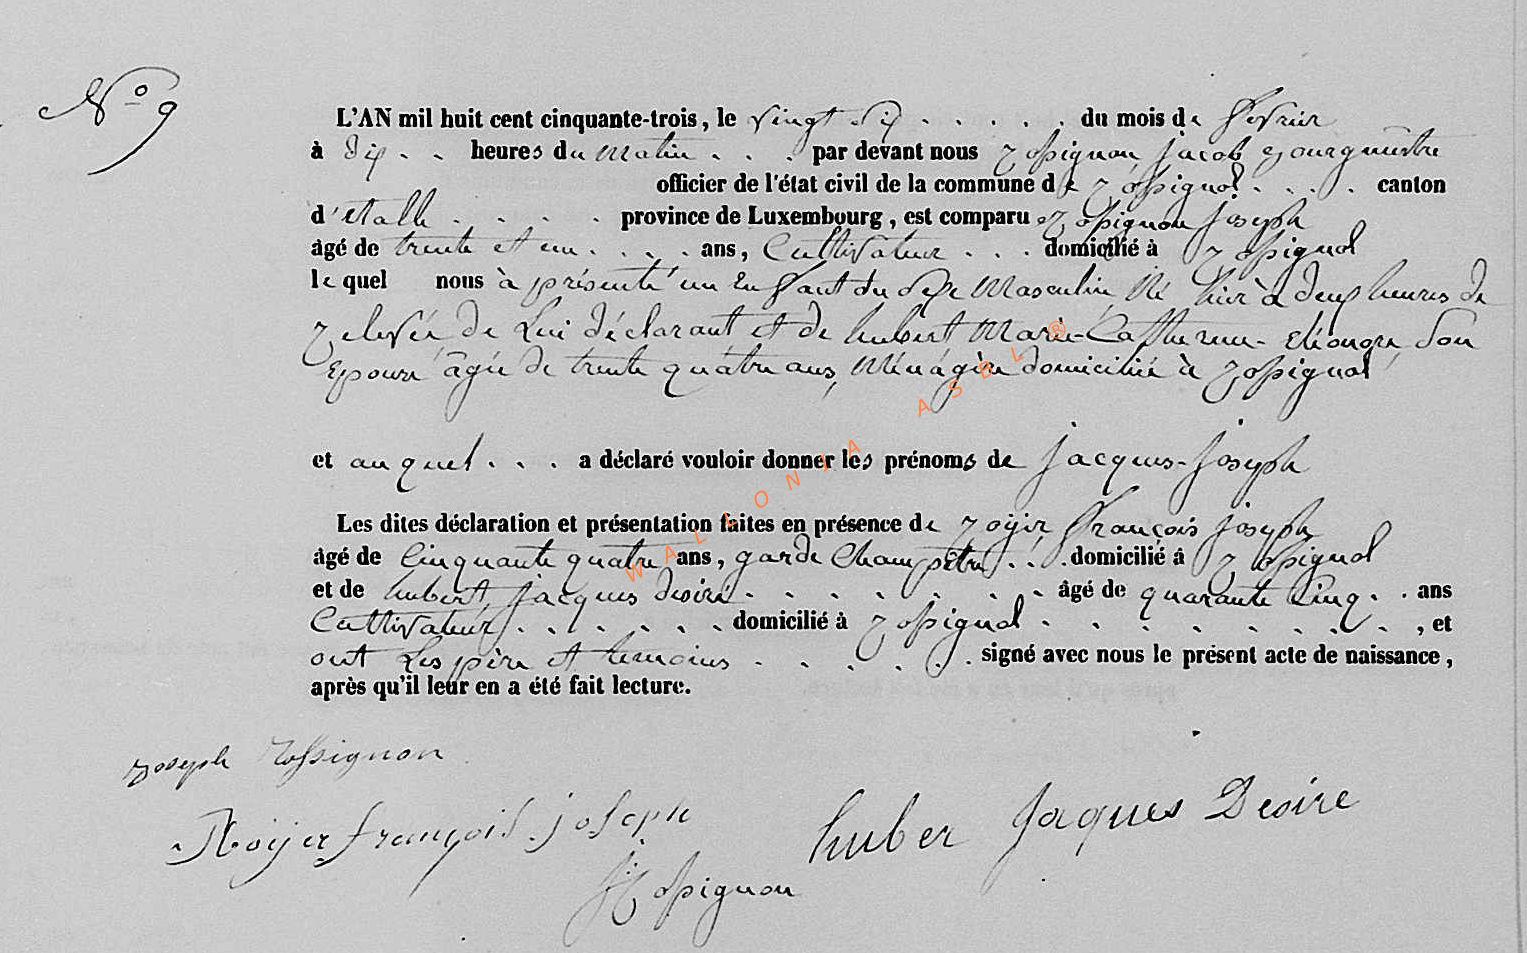 N° 9
L'AN mil huit cent cinquante-trois, le vingt six . . . . . du mois de fevrier
à dix . . heures du matin . . . par devant nous rossignon jacob bourgmestre
officier de l'état civil de la commune de rossignol . . . . canton
d'etalle . . . . province de Luxembourg, est comparu rossignon joseph
àgé de trente et un . . . . ans, Cultivateur . . . domicilié à rossignol
le quel nous à présenté un Enfant du sexe masculin, Né hier à deux heures de
relevée de Lui déclarant et de hubert Marie-Catherine-Eléonore, Son
Epouse âgée de trente quatre ans, Ménagère domiciliée à rossignol
et auquel . . . a déclaré vouloir donner les prénoms de jacques-joseph
Les dites déclaration et présentation faites en présence de roijer françois joseph
àgé de Cinquante quatre ans, garde Champêtre . . . domicilié à rossignol
et de hubert jacques desiré . . . . . . . . àgé de quarante Cinq . . ans
Cultivateur . . . . . . . domicilié à rossignol . . . . . . . . . , et
ont Les père et temoins . . . . . . signé avec nous le présent acte de naissance,
après qu'il leur en a été fait lecture.
Joseph Rossignon
Roijer françois joseph
huber Jaques Desire
J Rossignon
WALLONIA ASBL ®